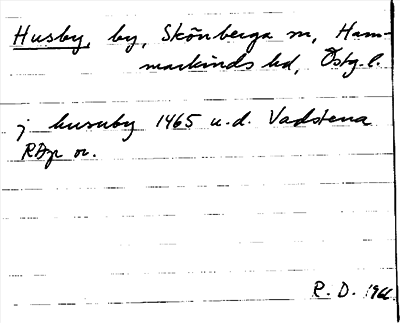 Husby, by, Skönberga sn, Ham-
markinds hd, Östg. l.
j husuby 1465 u.d. Vadstena
RAp or.
R. D. 1966